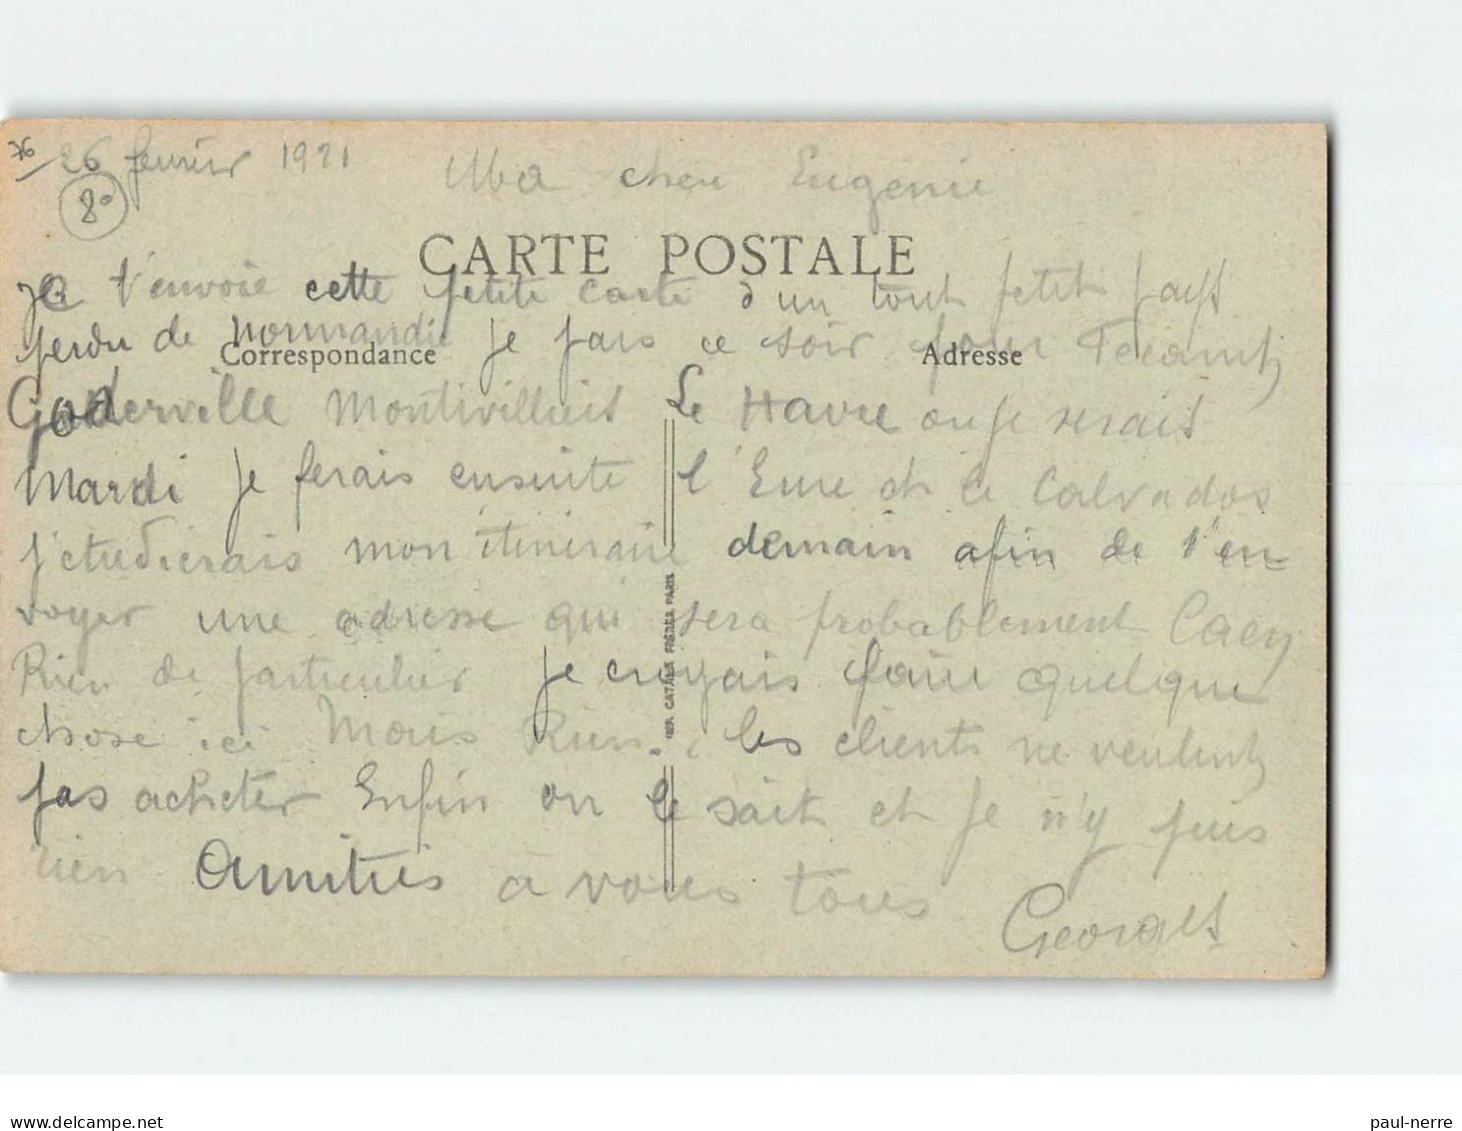 76
26 fevrier 1921
80
Ma cher Eugenie
CARTE POSTALE
Je t'envoie cette petite carte d'un tout petit pays
perdu de Normandie Je pars ce soir pour Fecamp
Correspondance
Adresse
Goderville Montivilliers Le Havre ou je serais
Mardi Je ferais ensuite l'Eure et le Calvados
J'etudierais mon itineraire demain afin de t'en
voyer une adresse qui sera probablement Caen
Rien de particulier Je croyais faire quelque
chose ici Mais Rien. les clients ne veulent
pas acheter Enfin on le sait et Je n'y puis
rien Amities à vous tous
Georges
IMP. CATALA FRÈRES PARIS
delcampe.net
paul-nerre